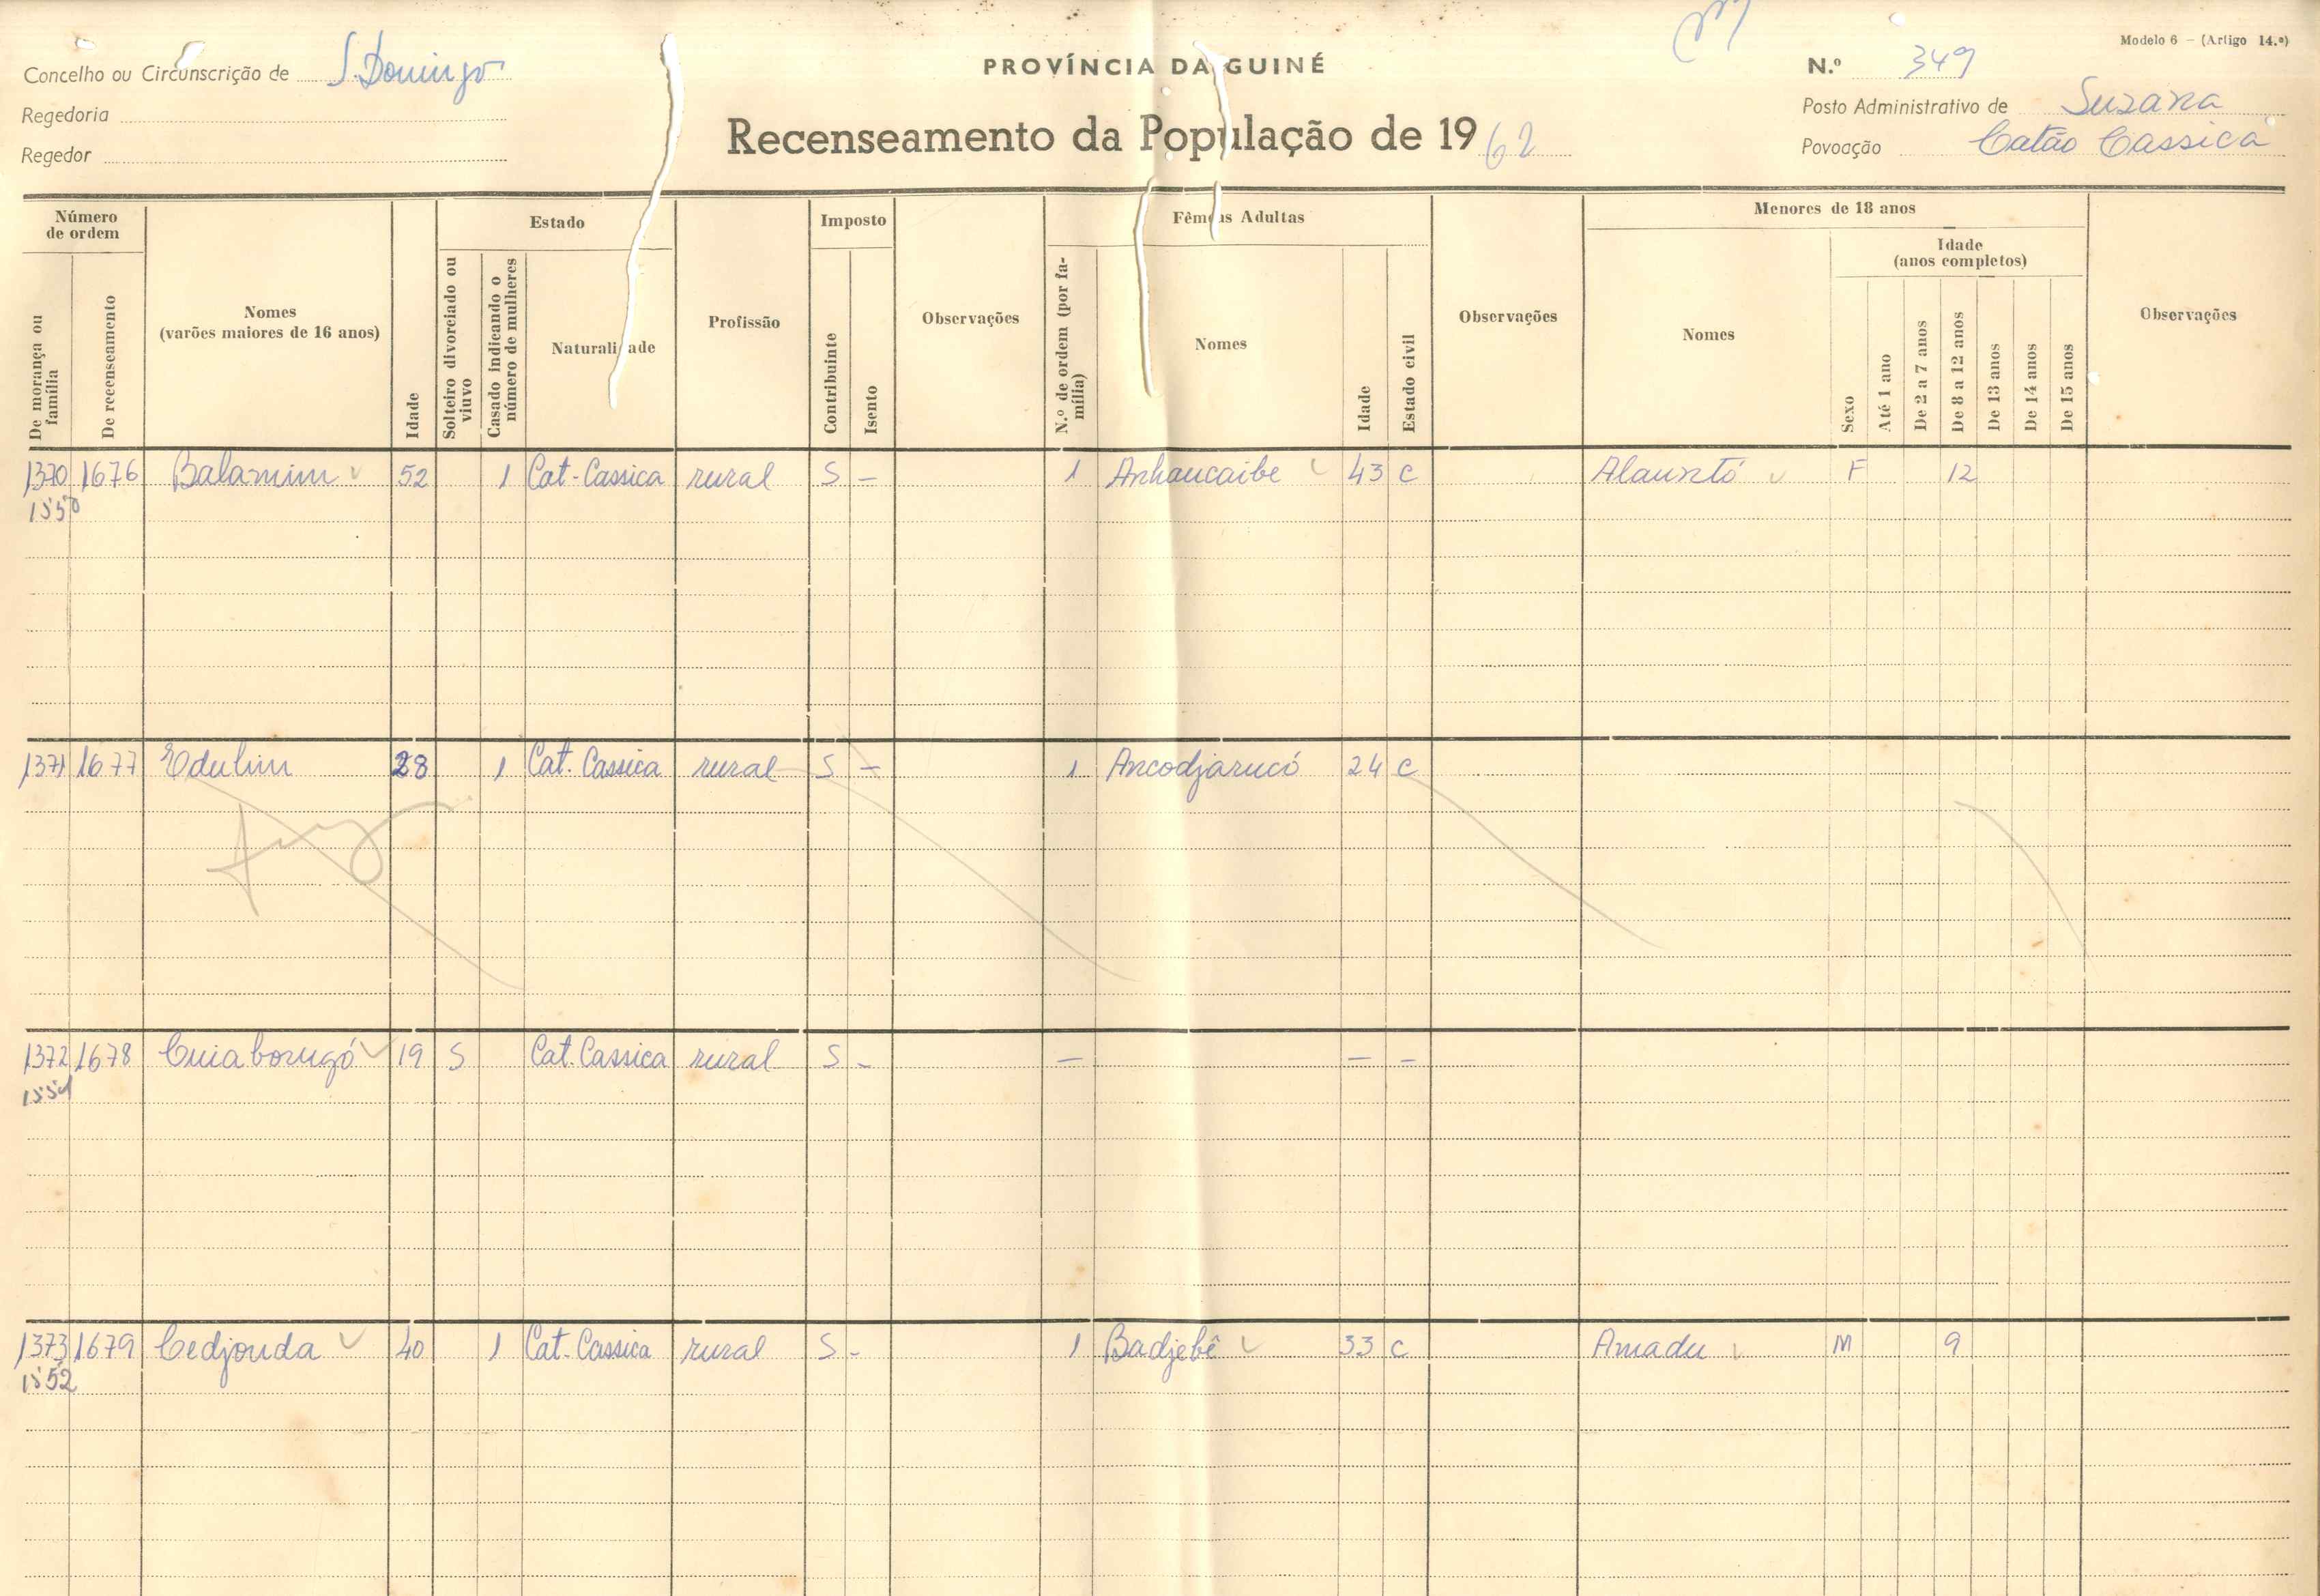 Modelo 6 — (Artigo 14.º)
Concelho ou Circunscrição de S. Domingo
PROVÍNCIA DA GUINÉ
N.º 349
Regedoria
Posto Administrativo de Suzana
Regedor
Recenseamento da População de 1962
Povoação Catão Cassica
Número de ordem
De morança ou família
De recenseamento
Nomes (varões maiores de 16 anos)
Idade
Estado
Solteiro divorciado ou viuvo
Casado indicando o número de mulheres
Naturalidade
Profissão
Imposto
Contribuinte
Isento
Observações
Fêmeas Adultas
N.º de ordem (por família)
Nomes
Idade
Estado civil
Observações
Menores de 18 anos
Nomes
Idade (anos completos)
Sexo
Até 1 ano
De 2 a 7 anos
De 8 a 12 anos
De 13 anos
De 14 anos
De 15 anos
Observações
1370 1676 Balamim 52 1 Cat-Cassica rural S - 1 Anhaucaibe 43 C Alauntó F 12
1550
1371 1677 Edulim 28 1 Cat. Cassica rural S - 1 Ancodjarucó 24 C
1372 1678 Cuiaborugó 19 S Cat. Cassica rural S - - - -
1551
1373 1679 Cedjonda 40 1 Cat. Cassica rural S - 1 Badjebê 33 C Amadu M 9
1552